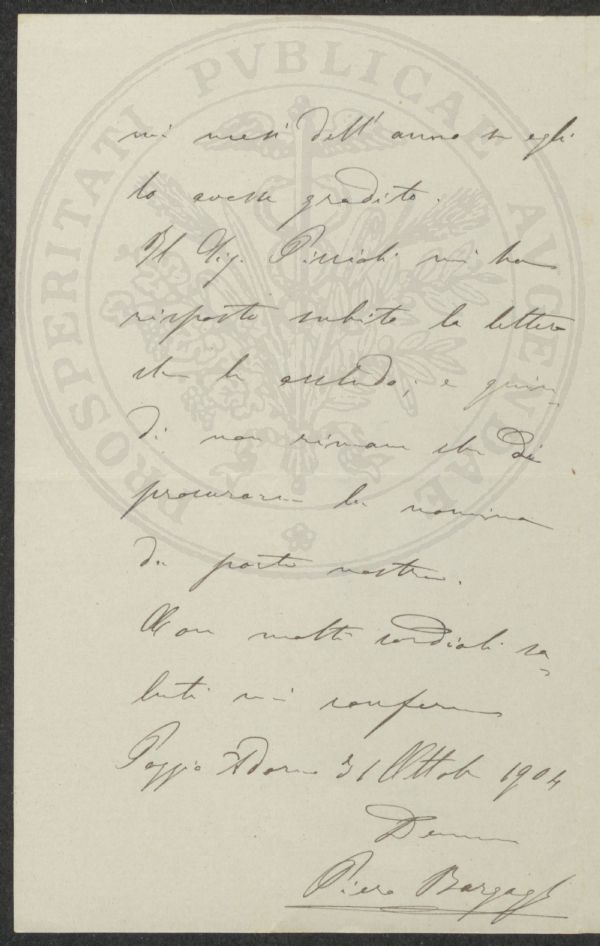 PROSPERITATI PVBLICAE AVGENDAE
mi mesi dell'anno se egli
lo avesse gradito.
Il Sig. mi ha
risposto subito la lettera
che le accludo; e quin-
di non rimane che di
procurare la nomina
da parte nostra.
Con molti cordiali sa-
luti mi confermo
Poggio Adorno 31 Ottobre 1904
Piero Bargagli